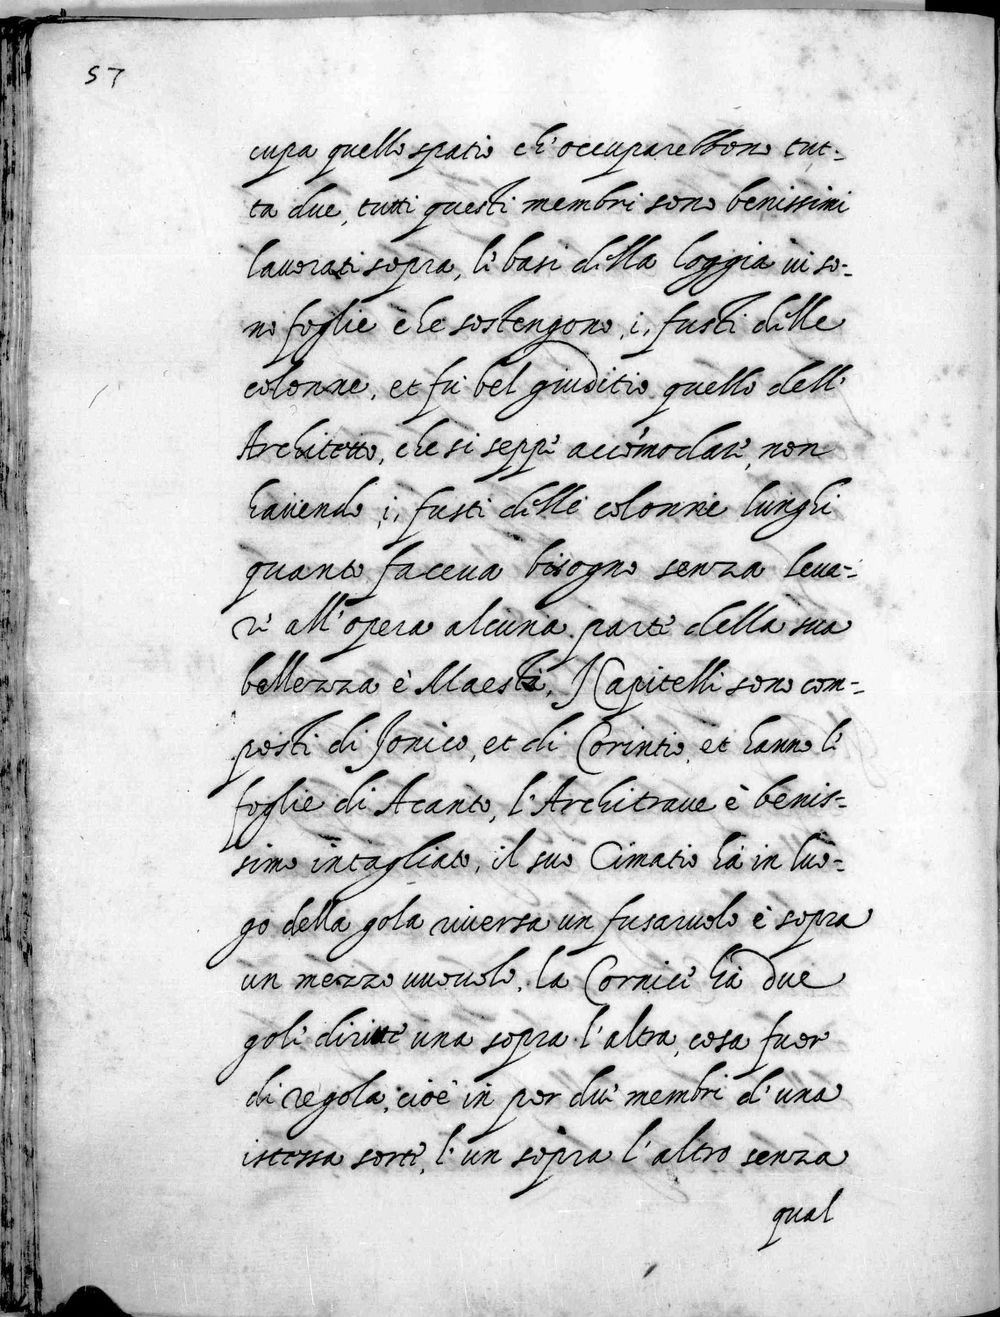 57
cupa quello spatio ch'occuparebbono tut-
ta due, tutti questi membri sono benissimi
lauorati sopra, le basi della loggia ui so-
no foglie che sostengono, i, fusti delle
colonne, et fù bel giuditio quello dell'
Architetto, che si seppe accomodare, non
hauendo, i, fusti delle colonne lunghi
quanto faceua bisogno senza leua-
re all'opera alcuna parte della sua
bellezza è Maestà, I Capitelli sono com-
posti di Jonico, et di Corintio, et hanno le
foglie di Acanto, l'Architraue è benis-
simo intagliato, il suo Cimatio hà in luo-
go della gola riuersa un fusaruolo è sopra
un mezzo uuouolo, la Cornice hà due
gole diritte una sopra l'altra, cosa fuor
di regola, cioè in por due membri d'una
istessa sorte, l'un sopra l'altro senza
qual